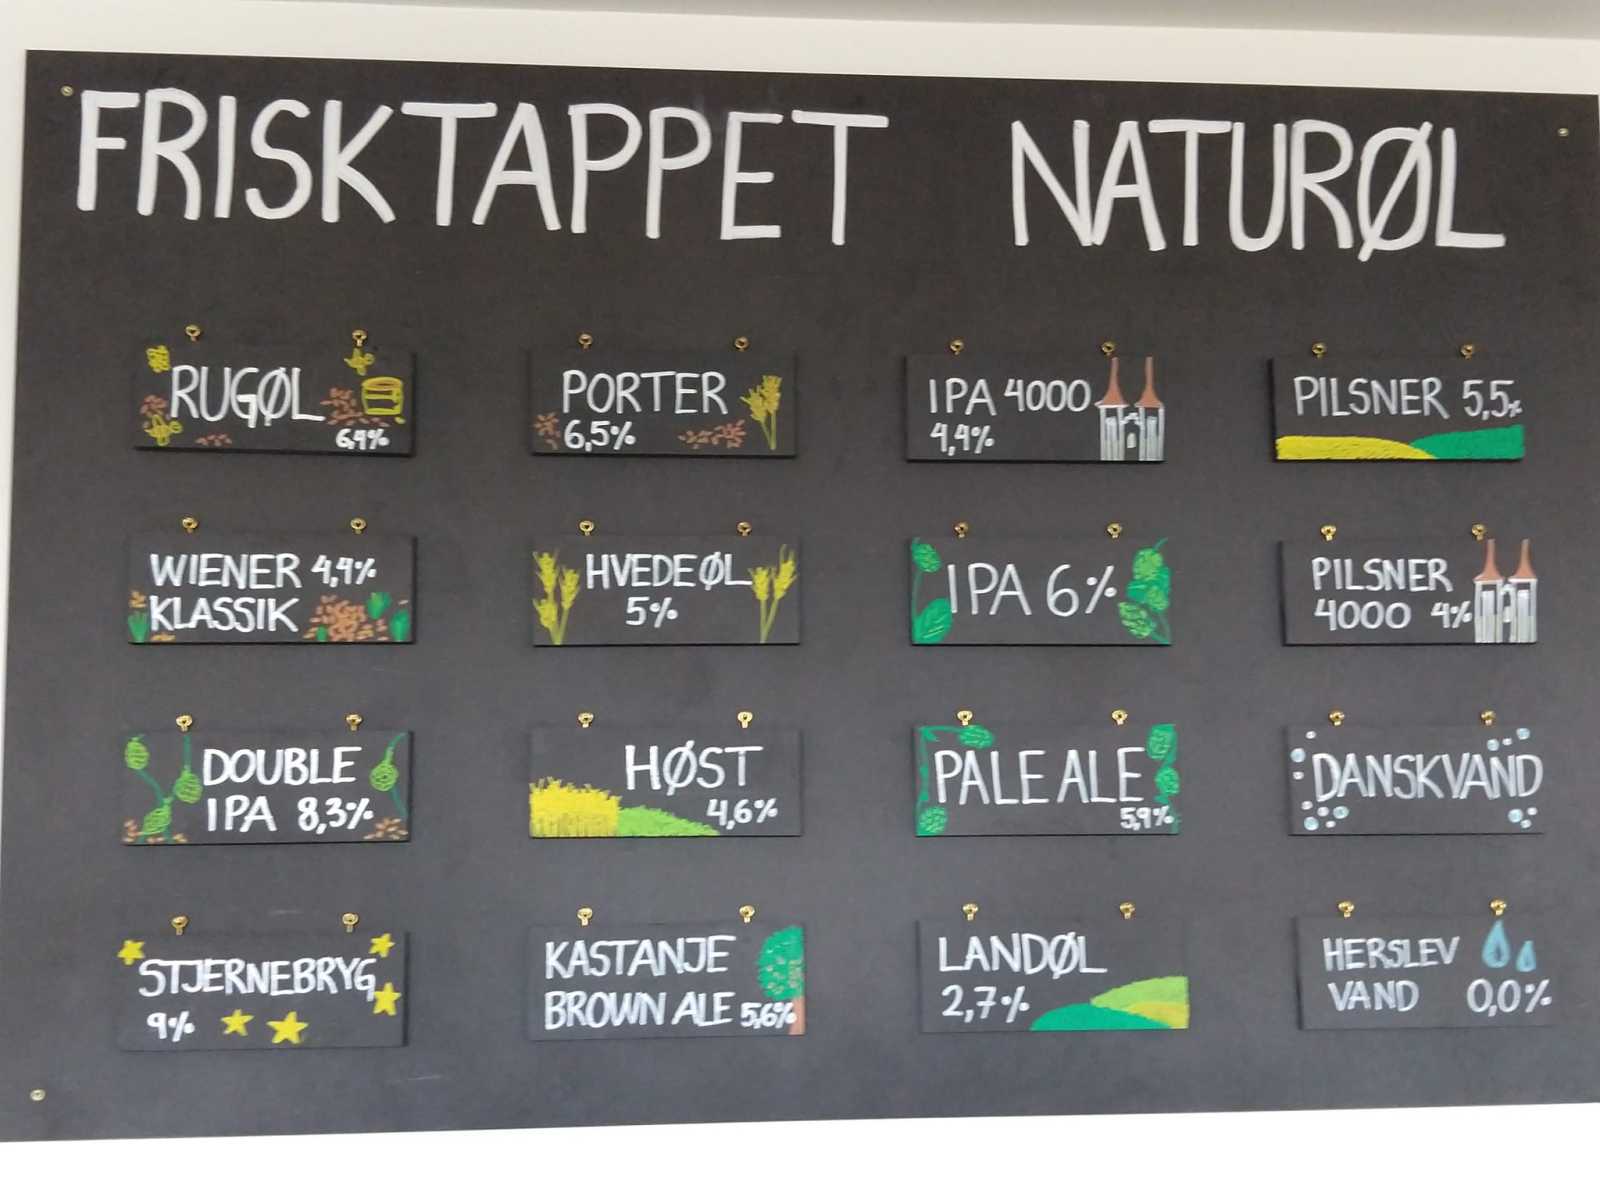 FRISKTAPPET NATURØL
RUGØL
6,4%
PORTER
6,5%
IPA 4000
4,4%
PILSNER 5,5%
WIENER 4,4%
KLASSIK
HVEDEØL
5%
IPA 6%
PILSNER
4000 4%
DOUBLE
IPA 8,3%
HØST
4,6%
PALE ALE
5,9%
DANSKVAND
STJERNEBRYG
9%
KASTANJE
BROWN ALE 5,6%
LANDØL
2,7%
HERSLEV
VAND 0,0%